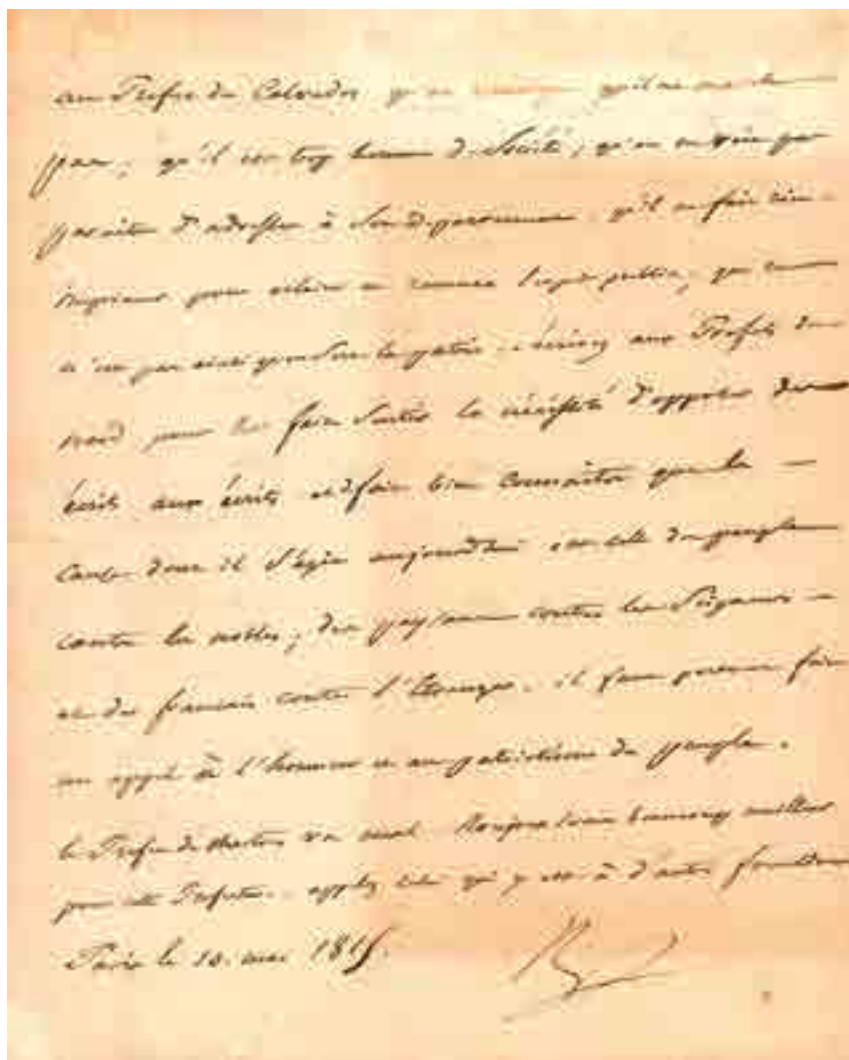 au Préfet du Calvados qu'il ne
pas; qu'il est trop homme de Société; qu'on ne voit pas
paraître d'adresses à son département, qu'il ne fait rien
imprimer pour éclairer et remuer l'esprit public; que
n'est pas ainsi qu'on sert la patrie. écrivez aux Préfets du
nord pour leur faire sentir la nécessité d'opposer des
écrits aux écrits et de faire bien connaitre que la
cause dont il s'agit aujourdhui est celle du peuple
contre les nobles; des paysans contre les Seigneurs
et des français contre l'Etranger. il faut partout faire
un appel à l'honneur et au patriotisme du peuple.
le Préfet de va mal. beaucoup meilleur
pour cette Préfecture. appelez celui qui y est à d'autres fonctions
Paris le 10. mai 1815.